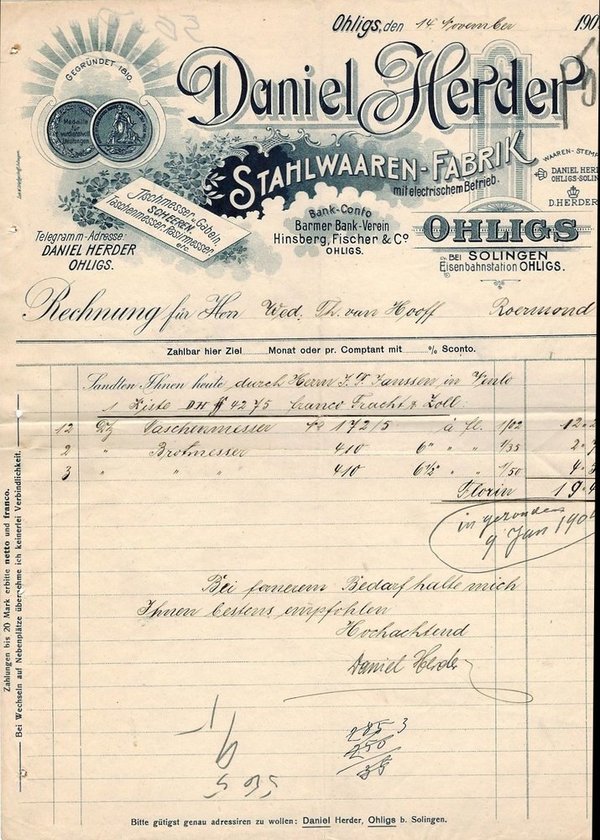 Ohligs, den 14. November 190
GEGRÜNDET 1810.
Medaille für verdienstvolle Leistungen
Daniel Herder
STAHLWAAREN-FABRIK
mit electrischem Betrieb.
WAAREN-STEMP
DANIEL HERD
OHLIGS-SOLIN
D. HERDER
Tischmesser-Gabeln,
SCHEEREN,
Taschenmesser, Rasirmesser
etc.
Bank-Conto
Barmer Bank-Verein
Hinsberg, Fischer & Co
OHLIGS.
OHLIGS
BEI SOLINGEN
Eisenbahnstation OHLIGS.
Telegramm-Adresse:
DANIEL HERDER
OHLIGS.
Rechnung für Herr Wed. Th. van Hooff Roermond
Zahlbar hier Ziel Monat oder pr. Comptant mit % Sconto.
Sandten Ihnen heute durch Herrn J. F. Janssen in Venlo
1 Kiste DH # 4275 franco Fracht & Zoll.
12 Dz Taschenmesser No 172/5 à fl. 1/02 12.2
2 " Brotmesser 410 6" " " 1/35 2.7
3 " " " 410 6½ " " 1/50 4.5
Florin 19.4
in gezonden
9 Jan 190
Bei fernerem Bedarf halte mich
Ihnen bestens empfohlen
Hochachtend
Daniel Herder
285 3
250
35
565
Zahlungen bis 20 Mark erbitte netto und franco.
Bei Wechseln auf Nebenplätze übernehme ich keinerlei Verbindlichkeit.
Bitte gütigst genau adressiren zu wollen: Daniel Herder, Ohligs b. Solingen.